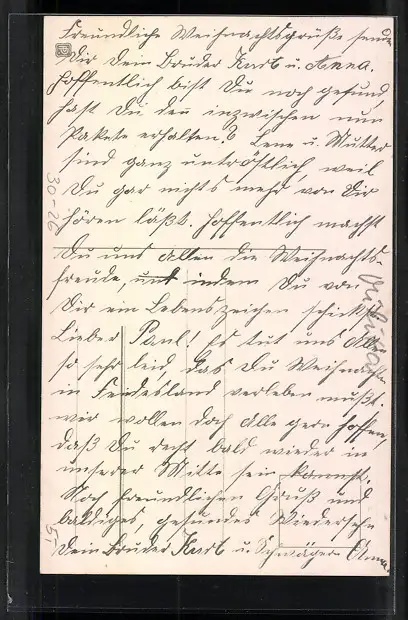 Freundliche Weihnachtsgrüße sendet
Dir Dein Bruder Karl u. Anna.
Hoffentlich bist Du noch gesund,
hast Du den inzwischen nun
Pakete erhalten? Lene u. Mutter
sind ganz untröstlich, weil
Du gar nichts mehr von Dir
hören läßt. Hoffentlich machst
Du uns Allen die Weihnachts-
freude, und indem Du von
Dir ein Lebenszeichen schickst.
Lieber Paul! Es tut uns Allen
so sehr leid, das Du Weihnachten
in Feindesland verleben mußt.
wir wollen doch Alle gern hoffen,
daß Du recht bald wieder in
unserer Mitte sein kannst.
Noch freundlichen Gruß und
baldiges, gesundes Wiedersehn
Dein Bruder Karl u. Schwägerin Anna.
30-26
5,-